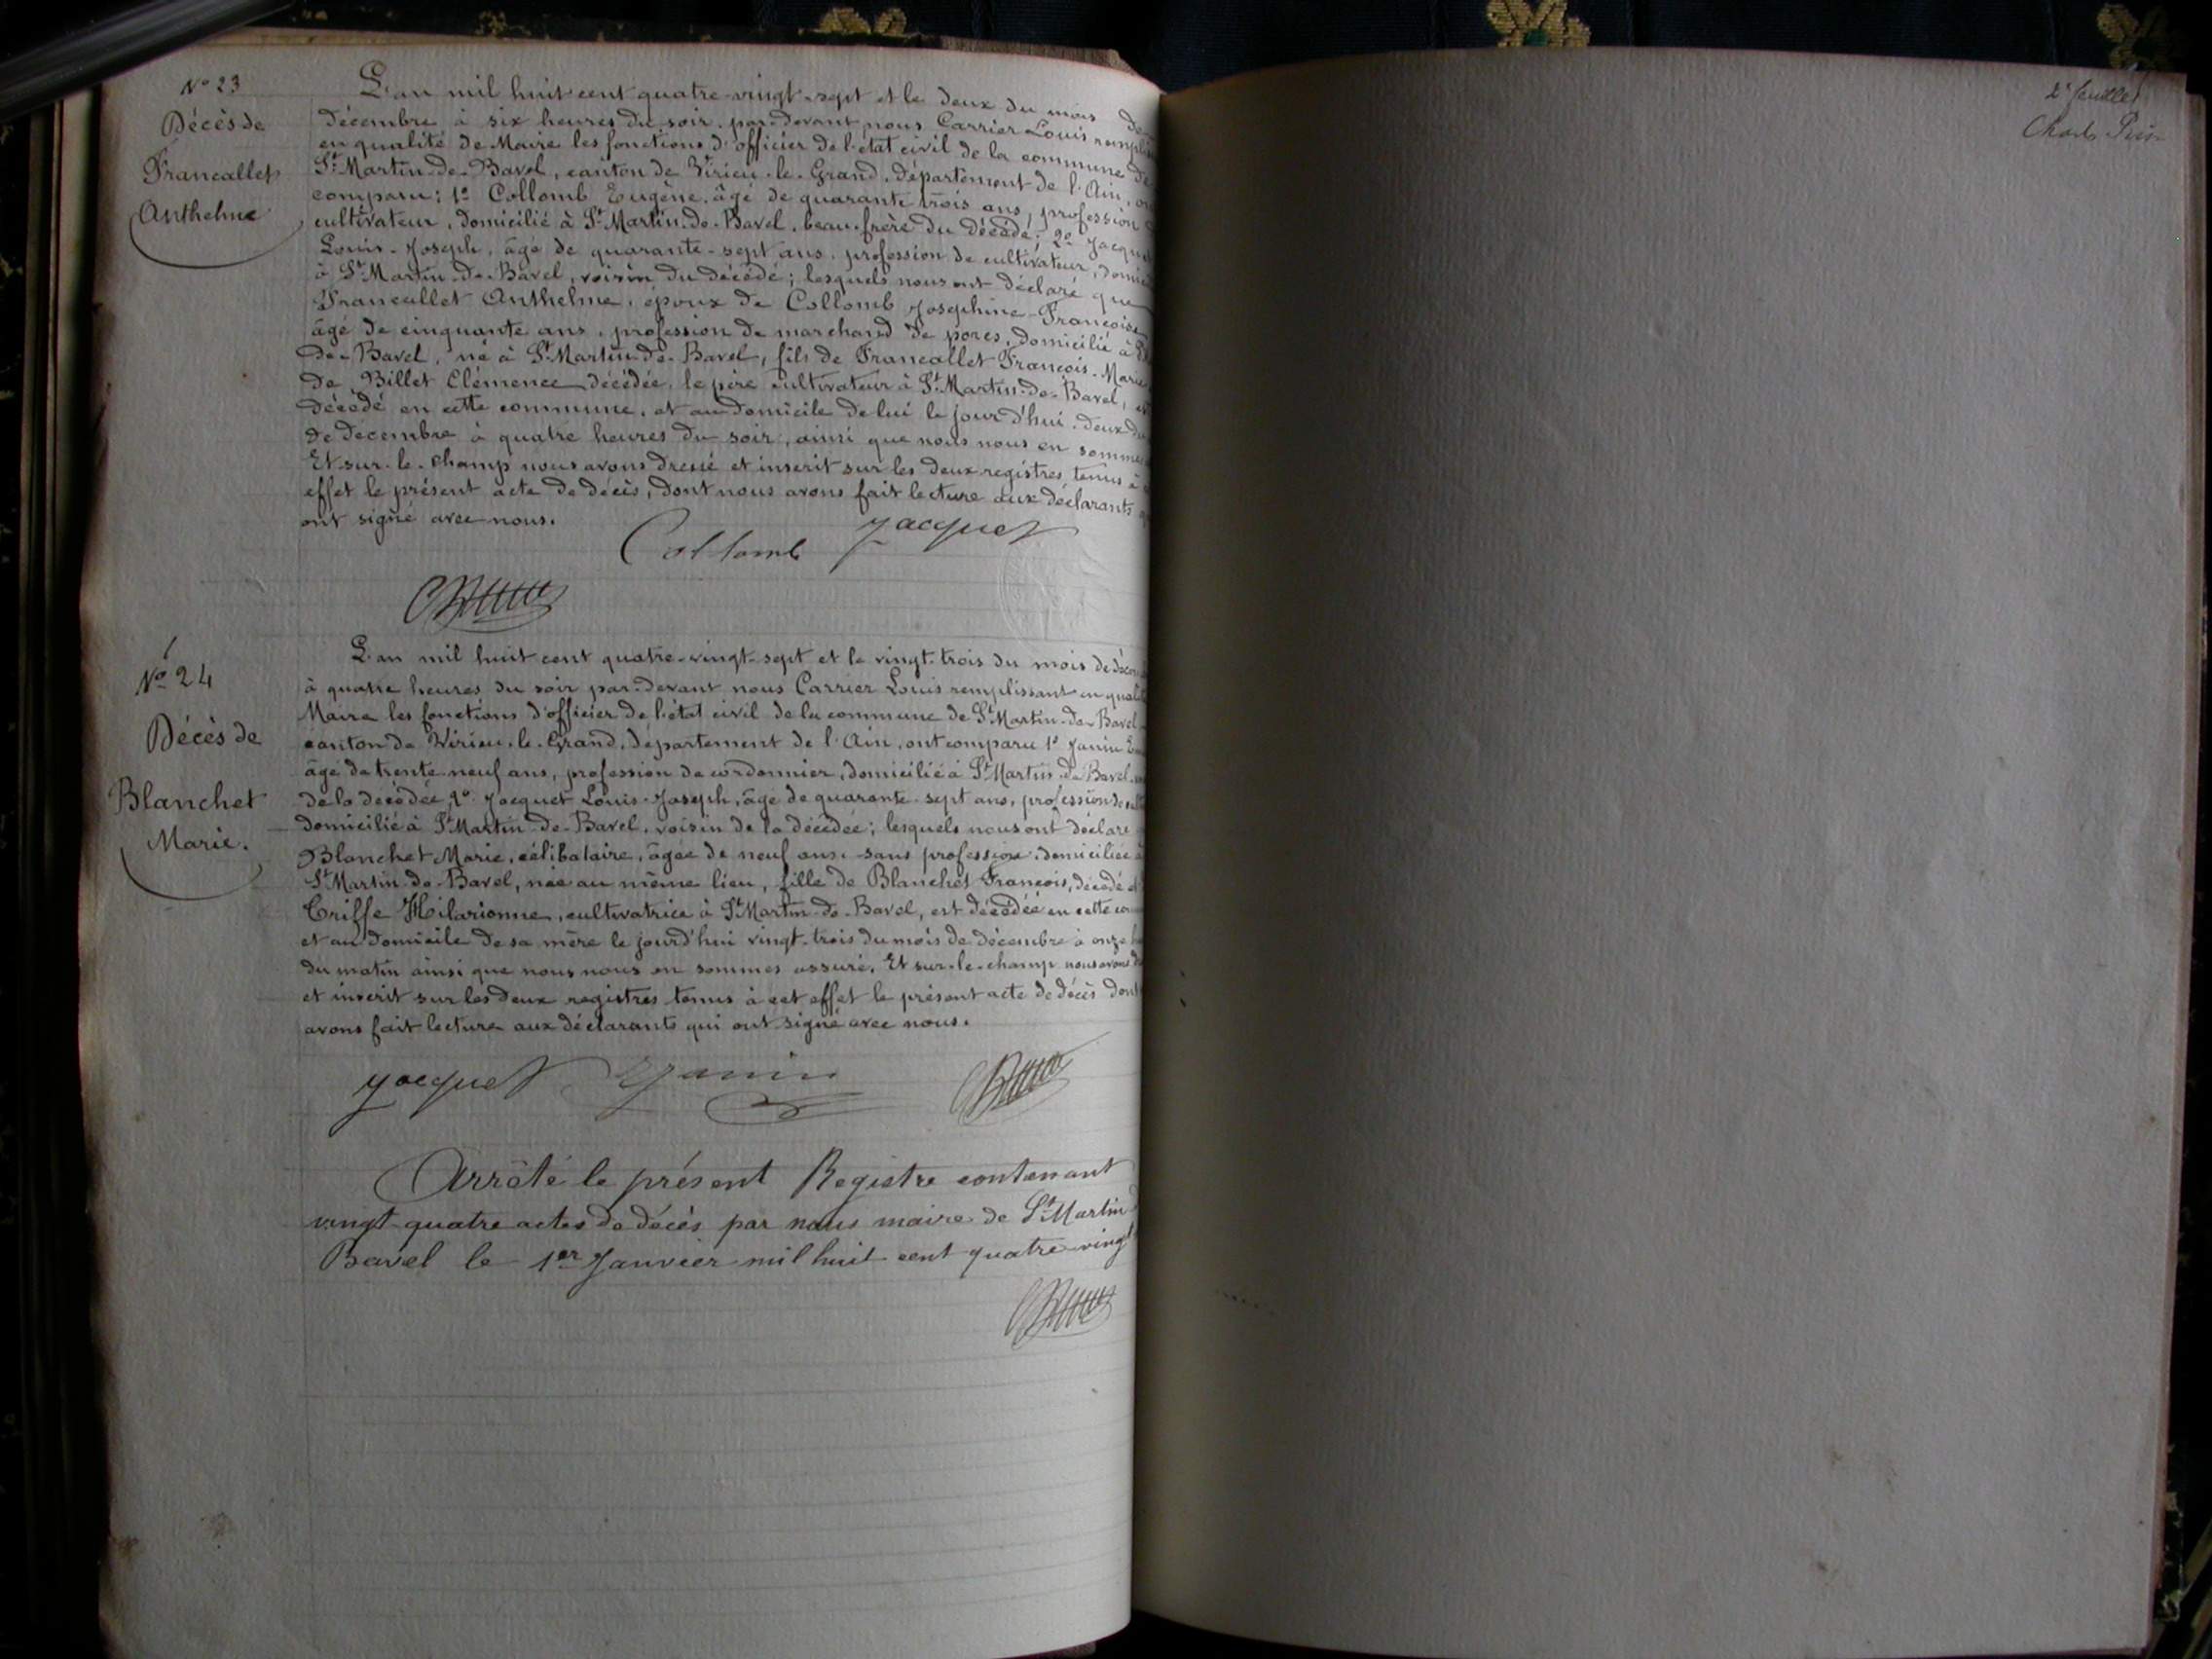 N° 23
Décès de
Francallet
Anthelme
L'an mil huit cent quatre-vingt-sept et le deux du mois de
décembre à six heures du soir, par-devant nous Carrier Louis
en qualité de Maire les fonctions d'officier de l'état civil de la commune de
St Martin-de-Bavel, canton de Virieu-le-Grand, département de l'Ain,
comparu: 1° Collomb Eugène, âgé de quarante trois ans, profession
cultivateur, domicilié à St Martin-de-Bavel, beau-frère du décédé; 2°
Louis-Joseph, âgé de quarante-sept ans, profession de cultivateur,
à St Martin-de-Bavel, voisin du décédé; lesquels nous ont déclaré que
Francallet Anthelme, époux de Collomb Josephine-Françoise
âgé de cinquante ans, profession de marchand de porcs, domicilié à
de-Bavel, né à St Martin-de-Bavel, fils de Francallet François-Marie
de Billet Clémence décédée, le père cultivateur à St Martin-de-Bavel,
décédé en cette commune, et au domicile de lui le jourd'hui deux du
de décembre à quatre heures du soir, ainsi que nous nous en
Et sur-le-champ nous avons dressé et inscrit sur les deux registres tenus à
effet le présent acte de décès, dont nous avons fait lecture aux déclarants
ont signé avec nous.
Collomb Jacquet
N° 24
Décès de
Blanchet
Marie.
L'an mil huit cent quatre-vingt-sept et le vingt-trois du mois de
à quatre heures du soir par-devant nous Carrier Louis remplissant en
Maire les fonctions d'officier de l'état civil de la commune de St Martin-de-Bavel
canton de Virieu-le-Grand, département de l'Ain, ont comparu 1° Janin
âgé de trente neuf ans, profession de cordonnier, domicilié à St Martin-de-Bavel,
de la décédée, 2° Jacquet Louis-Joseph, âgé de quarante-sept ans, profession de
domicilié à St Martin-de-Bavel, voisin de la décédée; lesquels nous ont déclaré
Blanchet Marie, célibataire, âgée de neuf ans, sans profession, domiciliée à
St Martin-de-Bavel, née au même lieu, fille de Blanchet François, décédé et
Hilarionne, cultivatrice à St Martin-de-Bavel, est décédée en cette
et au domicile de sa mère le jourd'hui vingt-trois du mois de décembre à onze
du matin ainsi que nous nous en sommes assuré. Et sur-le-champ nous avons
et inscrit sur les deux registres tenus à cet effet le présent acte de décès dont
avons fait lecture aux déclarants qui ont signé avec nous.
Jacquet Janin
Arrêté le présent Registre contenant
vingt-quatre actes de décès par nous maire de St Martin
Bavel le 1er Janvier mil huit cent quatre-vingt
2e feuillet